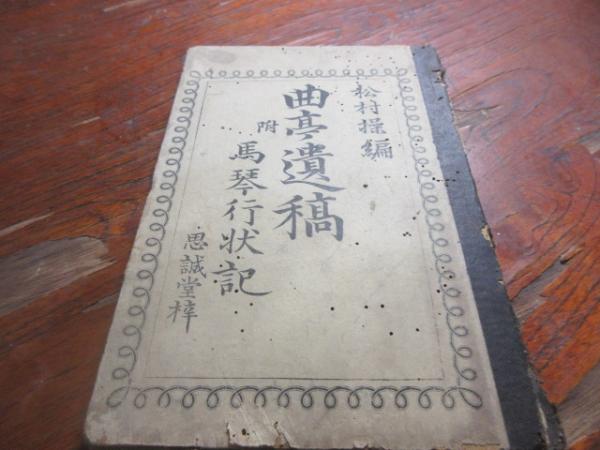 松村操編
曲亭遺稿
附馬琴行状記
思誠堂梓